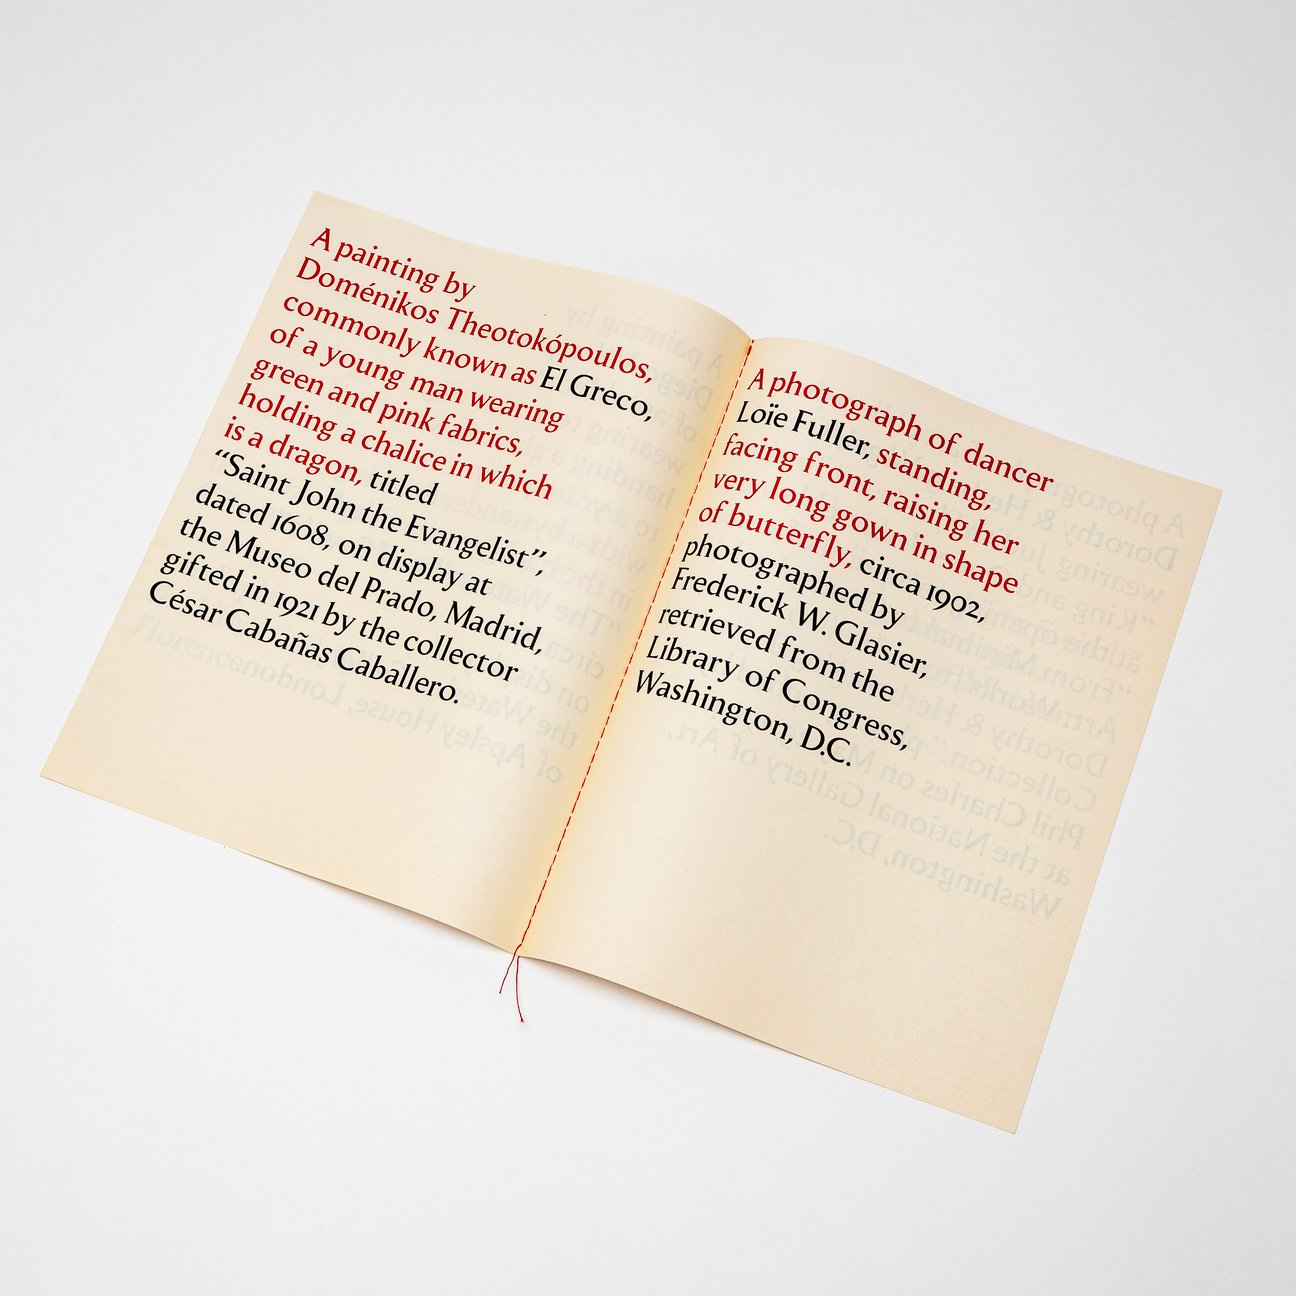 A painting by
Doménikos Theotokópoulos,
commonly known as El Greco,
of a young man wearing
green and pink fabrics,
holding a chalice in which
is a dragon, titled
“Saint John the Evangelist”,
dated 1608, on display at
the Museo del Prado, Madrid,
gifted in 1921 by the collector
César Cabañas Caballero.
A photograph of dancer
Loïe Fuller, standing,
facing front, raising her
very long gown in shape
of butterfly, circa 1902,
photographed by
Frederick W. Glasier,
retrieved from the
Library of Congress,
Washington, D.C.